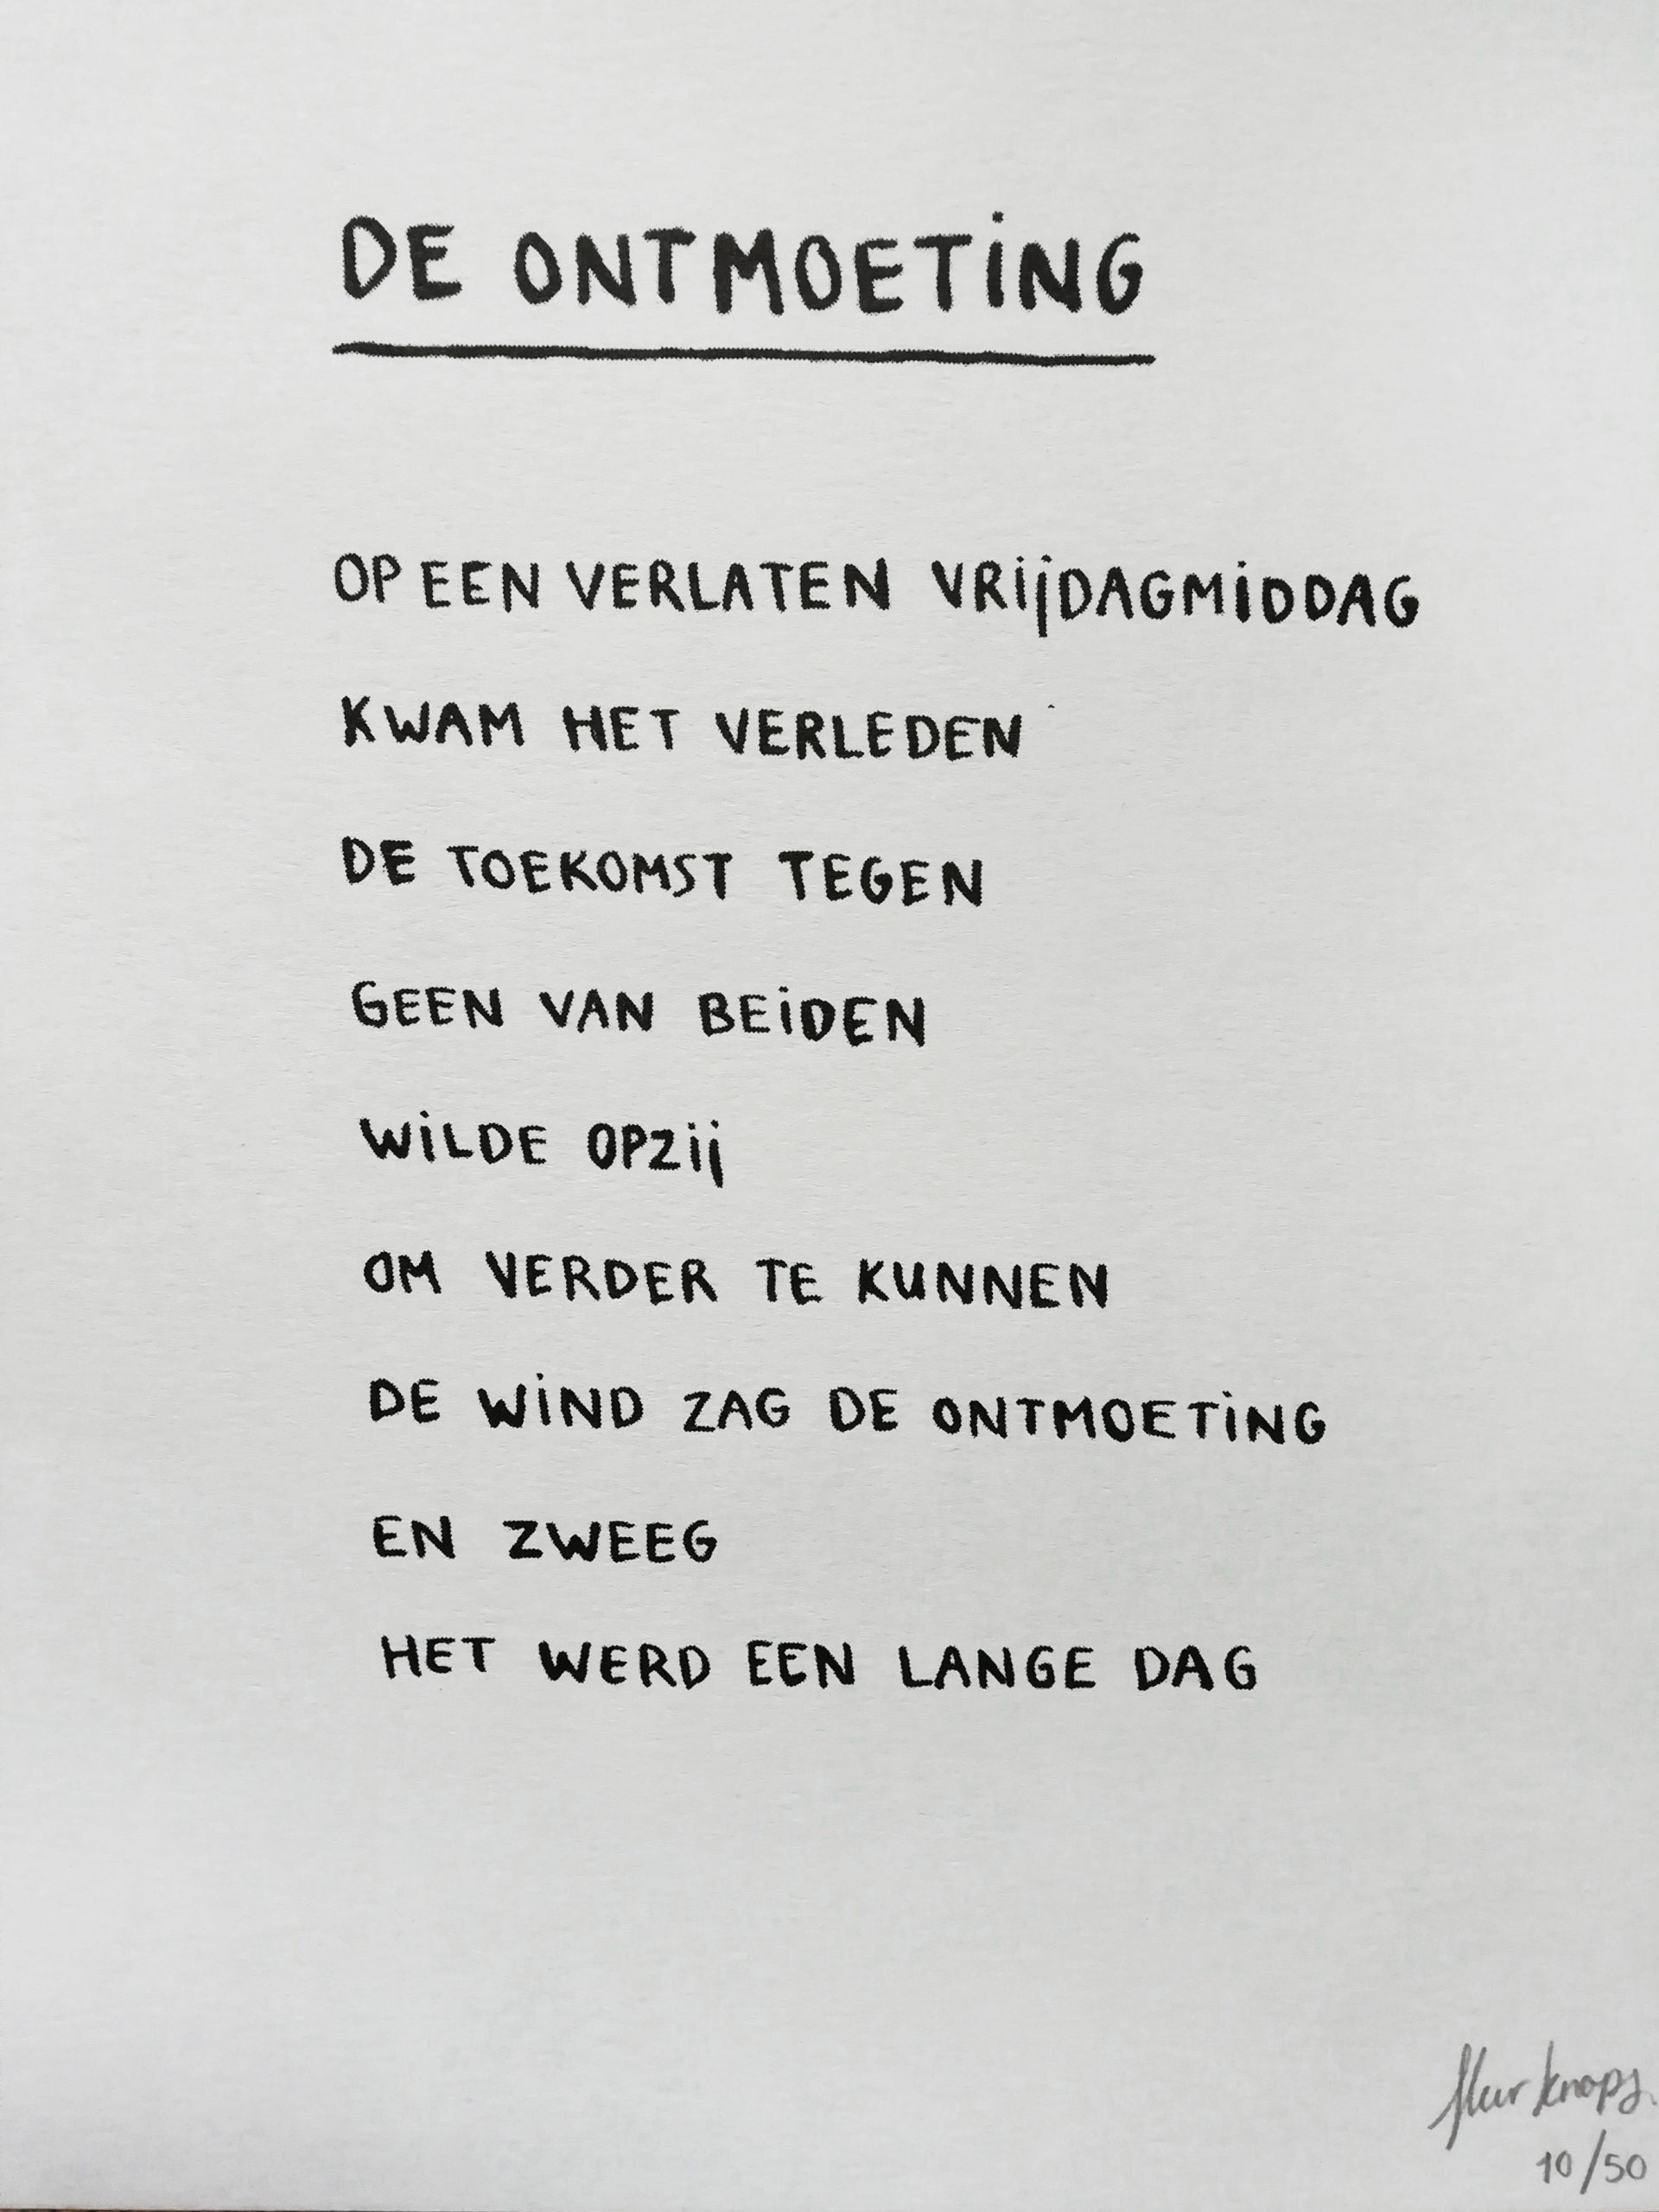 DE ONTMOETING
OP EEN VERLATEN VRIJDAGMIDDAG
KWAM HET VERLEDEN
DE TOEKOMST TEGEN
GEEN VAN BEIDEN
WILDE OPZIJ
OM VERDER TE KUNNEN
DE WIND ZAG DE ONTMOETING
EN ZWEEG
HET WERD EEN LANGE DAG
fleur knops.
10/50